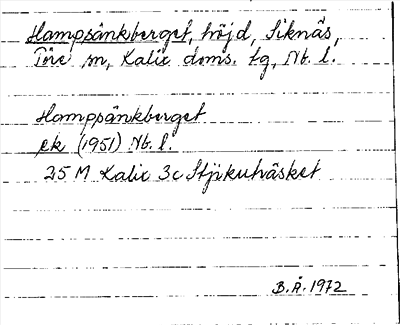 Hampsänkberget, höjd, Siknäs,
Töre sn, Kalix doms. tg, Nb. l.
Hampsänkberget
ek (1951) Nb. l.
25 M Kalix 3c Stjikuträsket
B.Å. 1972